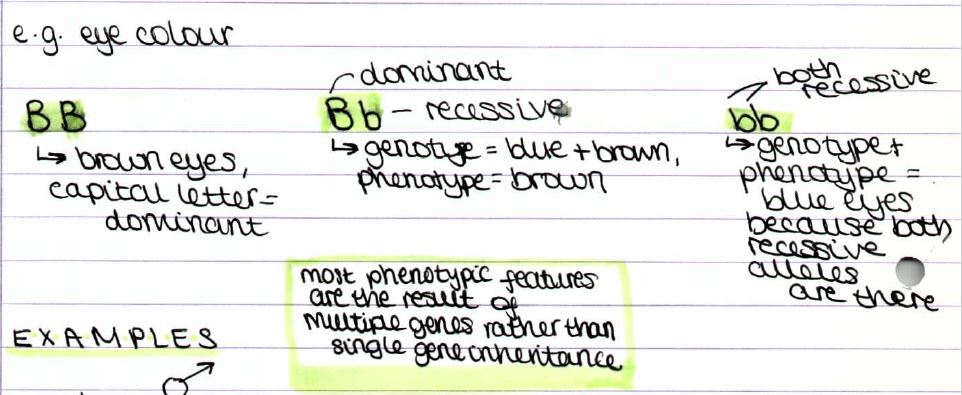 e.g. eye colour
BB
↳ brown eyes,
capital letter =
dominant
dominant
Bb - recessive
↳ genotye = blue + brown,
phenotype = brown
both
recessive
bb
↳ genotype +
phenotype =
blue eyes
because both
recessive
alleles
are there
most phenotypic features
are the result of
multiple genes rather than
single gene inheritance
EXAMPLES